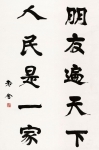 朋友遍天下
人民是一家